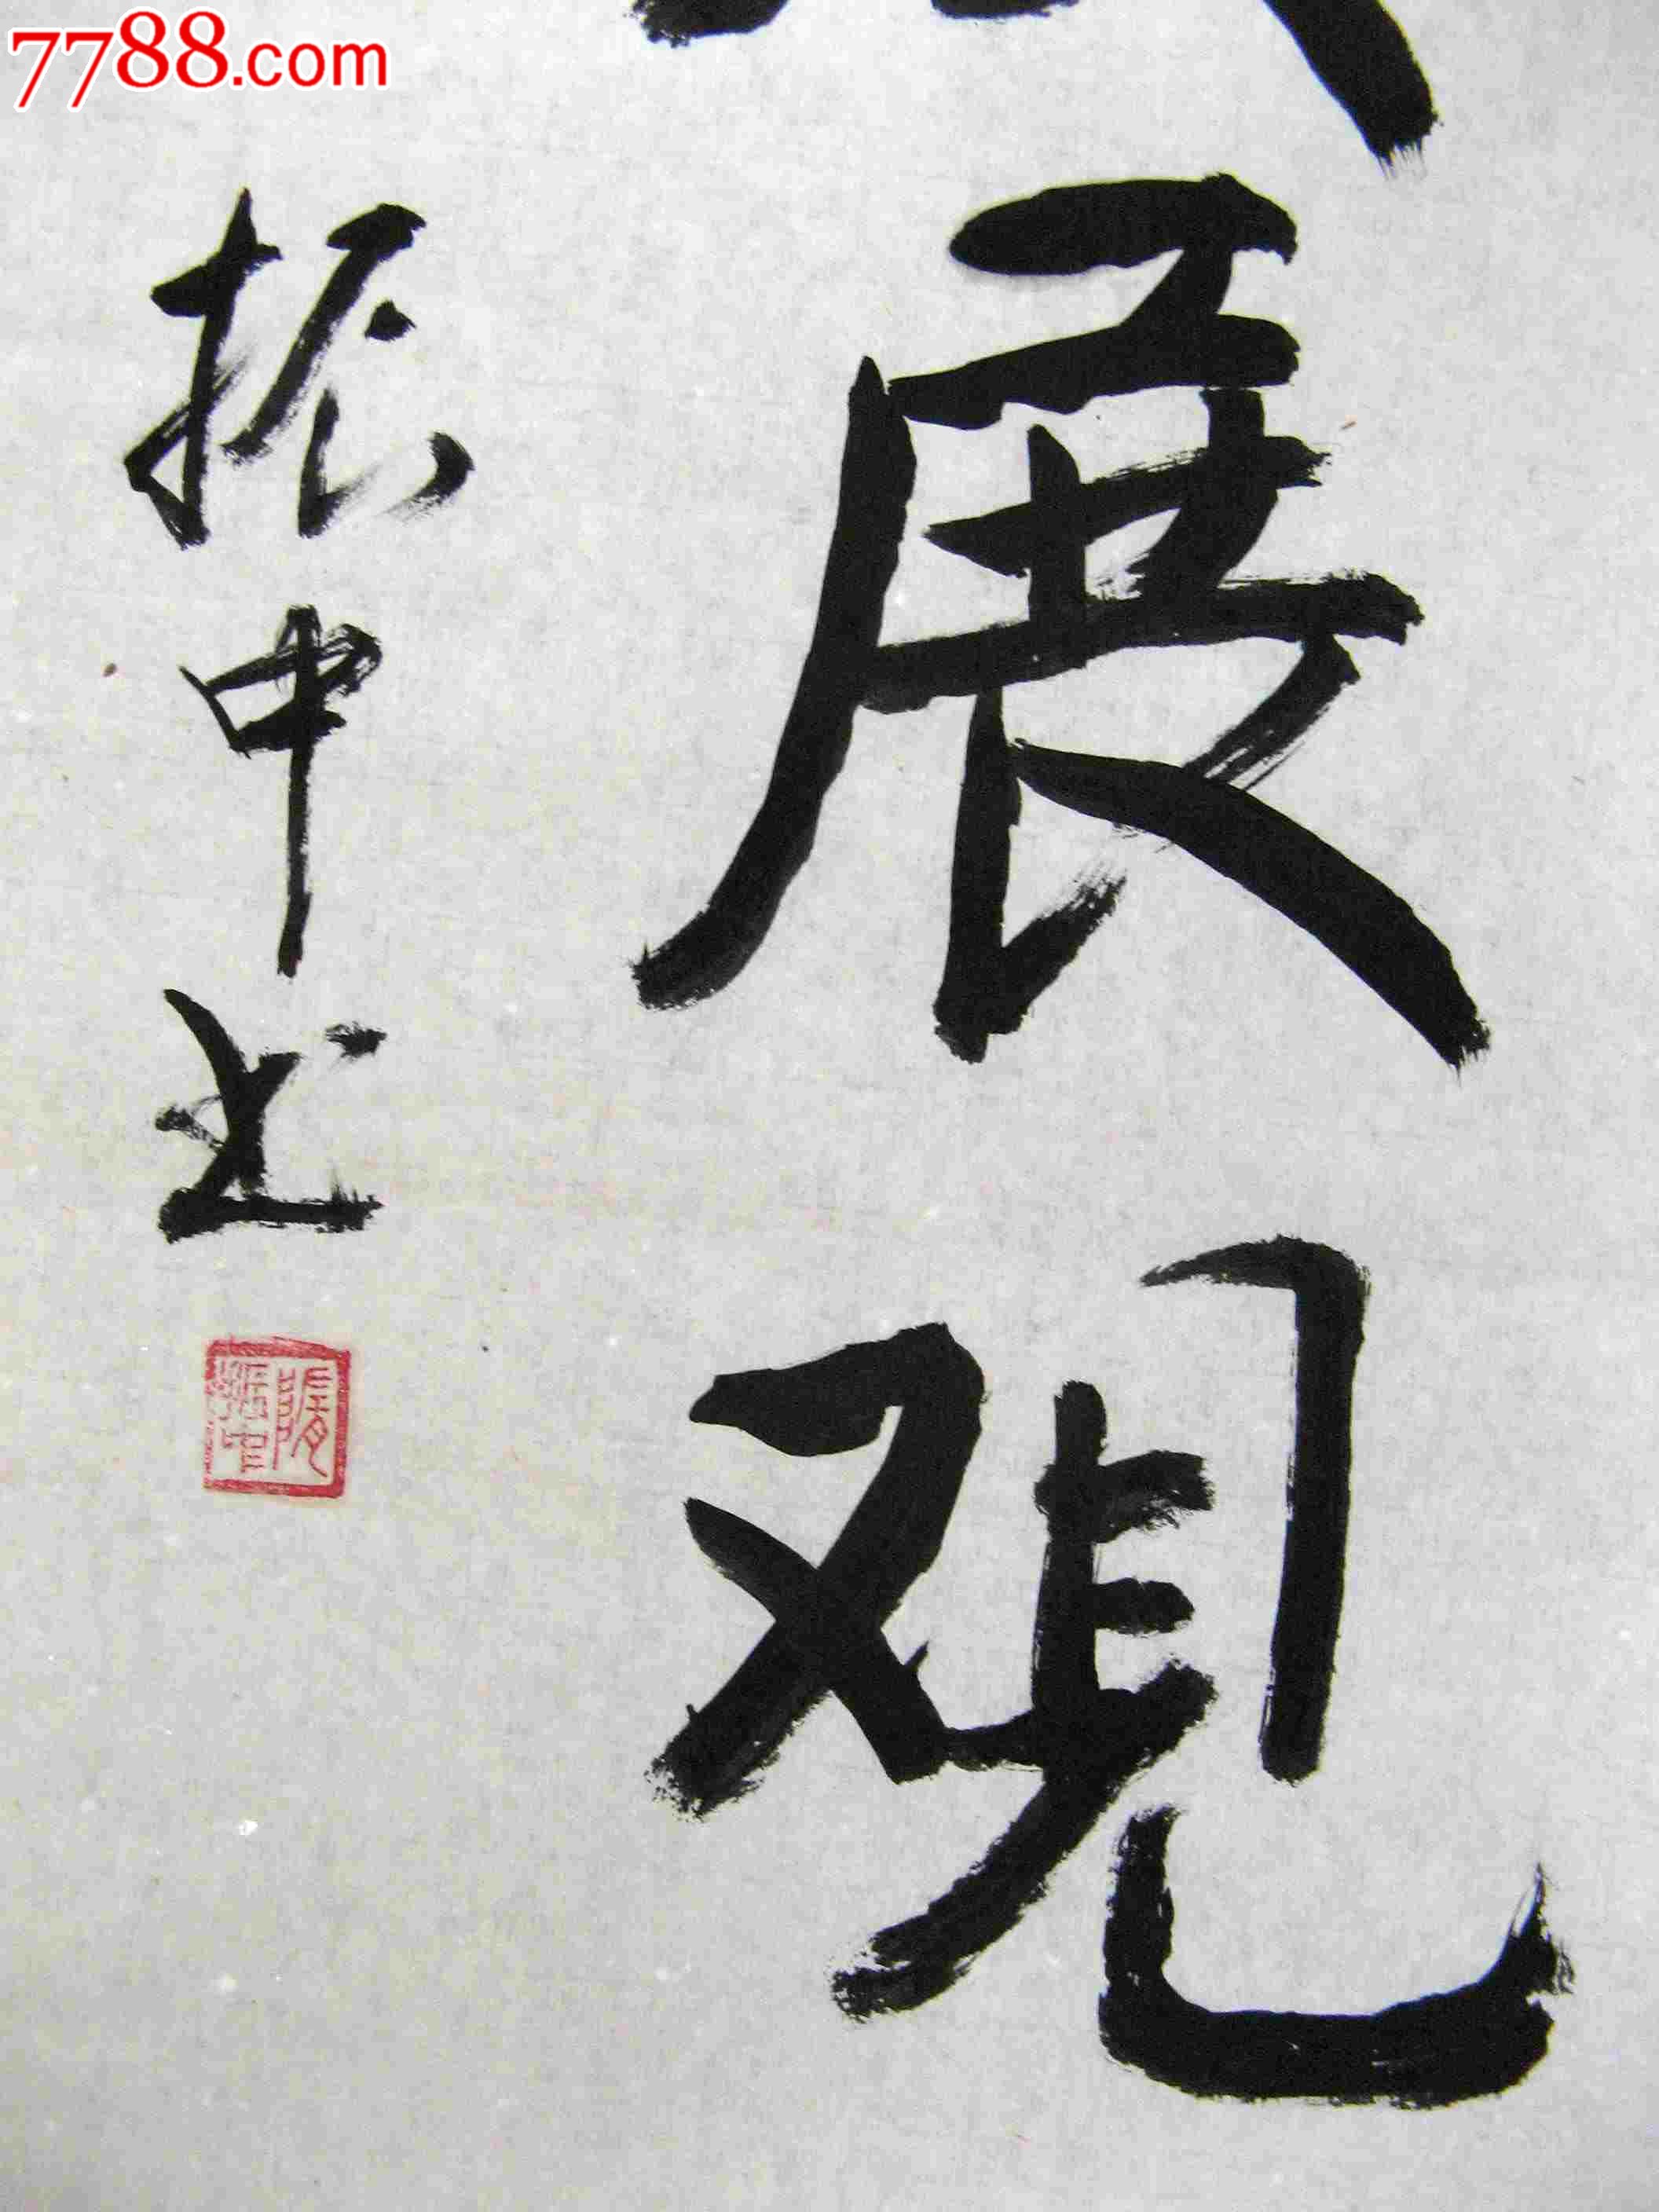 7788.com
展观
振中书